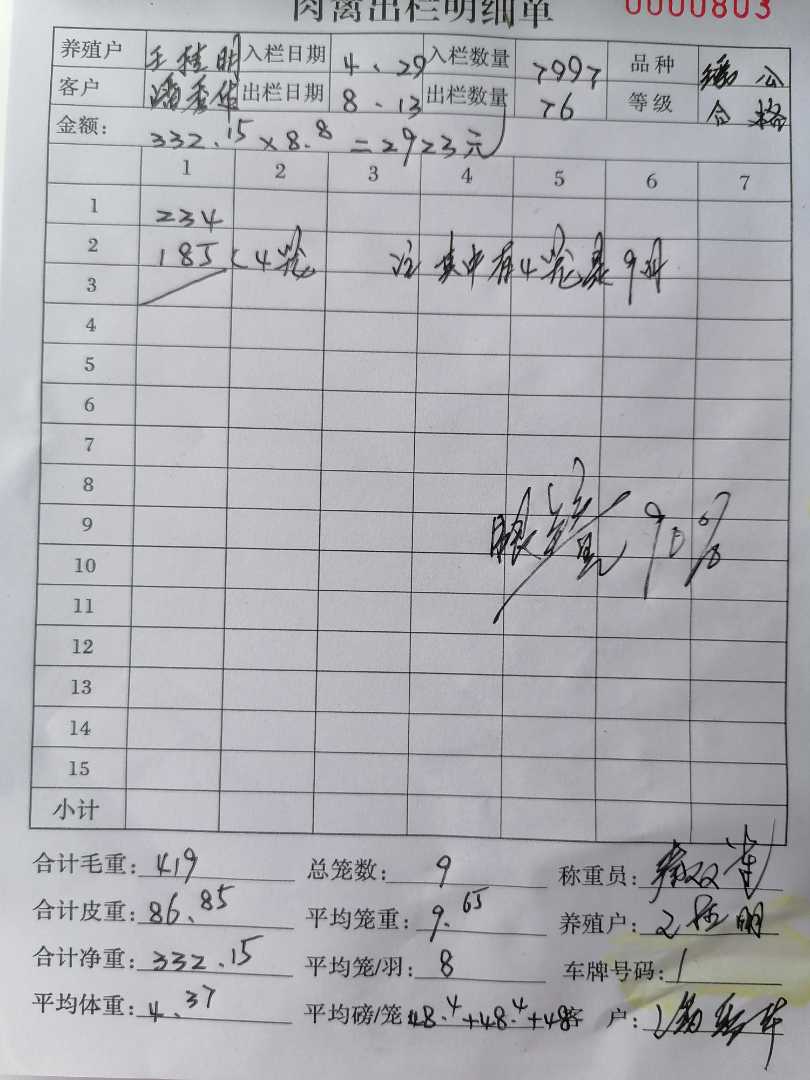 肉禽出栏明细单 0000803
养殖户 王桂明 入栏日期 4.29 入栏数量 7997 品种 公
客户 秀华 出栏日期 8.13 出栏数量 76 等级 合格
金额: 332.15×8.8=2923元
1 2 3 4 5 6 7
1 234
2 185<4笼 注 其中有4笼是9斗
3
4
5
6
7
8
9 90%
10
11
12
13
14
15
小计
合计毛重: 419 总笼数: 9 称重员:
合计皮重: 86.85 平均笼重: 9.65 养殖户: 王桂明
合计净重: 332.15 平均笼/羽: 8 车牌号码: /
平均体重: 4.37 平均磅/笼: 48.4+48.4+48 客户: 秀华